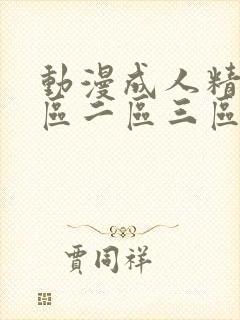 動漫成人精
區二區三區
賈同祥